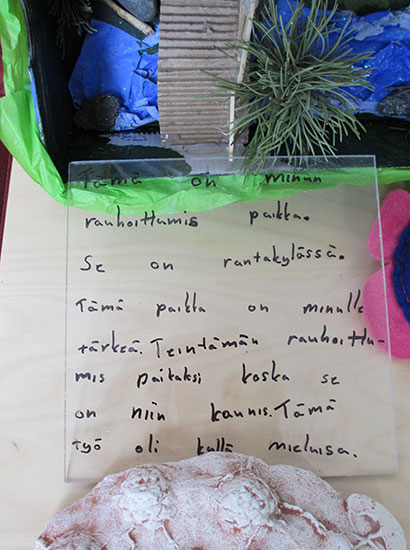 Tämä on minun
rauhoittumis paikka.
Se on rantakylässä.
Tämä paikka on minulle
tärkeä. Teintämän rauhoittu-
mis paikaksi koska se
on niin kaunis. Tämä
työ oli kyllä mieluisa.